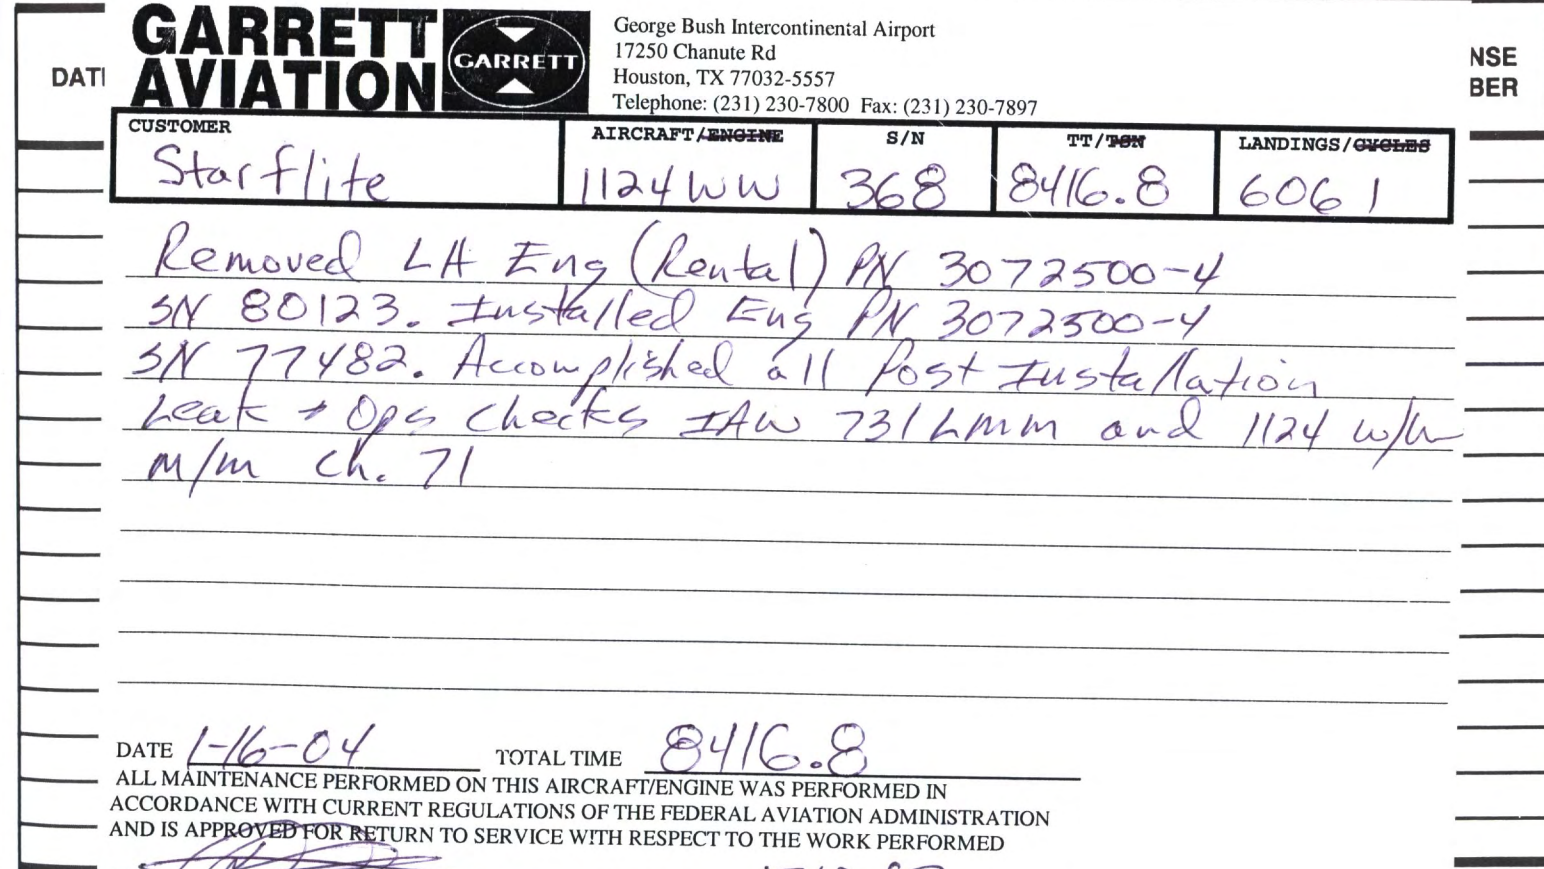 GARRETT
AVIATION
GARRETT
George Bush Intercontinental Airport
17250 Chanute Rd
Houston, TX 77032-5557
Telephone: (231) 230-7800 Fax: (231) 230-7897
DAT
NSE
BER
CUSTOMER AIRCRAFT/ENGINE S/N TT/TSN LANDINGS/CYCLES
Starflite 1124WW 368 8416.8 6061
Removed LH Eng (Rental) PN 3072500-4
SN 80123. Installed Eng PN 3072500-4
SN 77482. Accomplished all Post Installation
Leak + Ops Checks IAW 731 LMM and 1124 w/w
m/m Ch. 71
DATE 1-16-04 TOTAL TIME 8416.8
ALL MAINTENANCE PERFORMED ON THIS AIRCRAFT/ENGINE WAS PERFORMED IN
ACCORDANCE WITH CURRENT REGULATIONS OF THE FEDERAL AVIATION ADMINISTRATION
AND IS APPROVED FOR RETURN TO SERVICE WITH RESPECT TO THE WORK PERFORMED